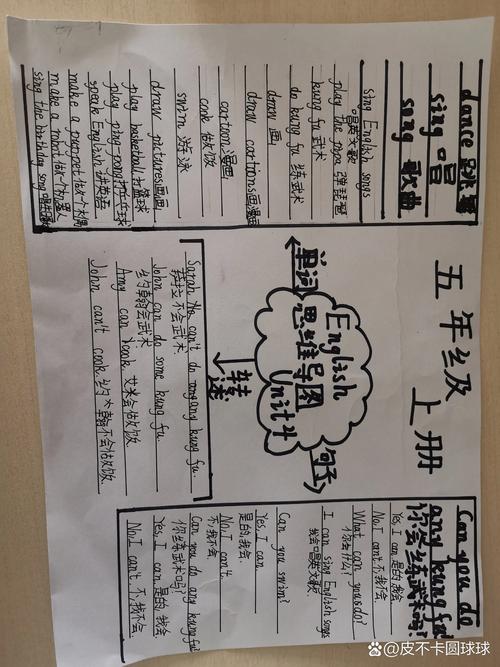 五年级
上册
English
思维导图
Unit 4
单词
句子
转述
dance 跳舞
sing 唱
song 歌曲
sing English songs
唱英文歌
play the pipa 弹琵琶
kung fu 武术
do kung fu 练武术
draw 画
draw cartoons 画漫画
cartoon 漫画
cook 做饭
swim 游泳
draw pictures 画画
play basketball 打篮球
play ping-pong 打乒乓球
speak English 讲英语
make a puppet 做一个木偶
make a robot 做一个机器人
sing the birthday song
Sarah: No, can't do any kung fu.
不会武术
John can do some kung fu.
约翰会武术
Amy can cook 艾米会做饭
John can't cook 约翰不会做饭
Can you do
any kung fu?
你会练武术吗?
Yes, I can 是的,我会
No, I can't 不,我不会
What can you do?
你会什么?
I can sing English songs
我会唱英文歌
Can you swim?
Yes, I can.
是的,我会
No, I can't.
不,我不会
Can you do any kung fu?
你会练武术吗?
Yes, I can 是的,我会
No, I can't. 不,我不会
@皮不卡圆球球